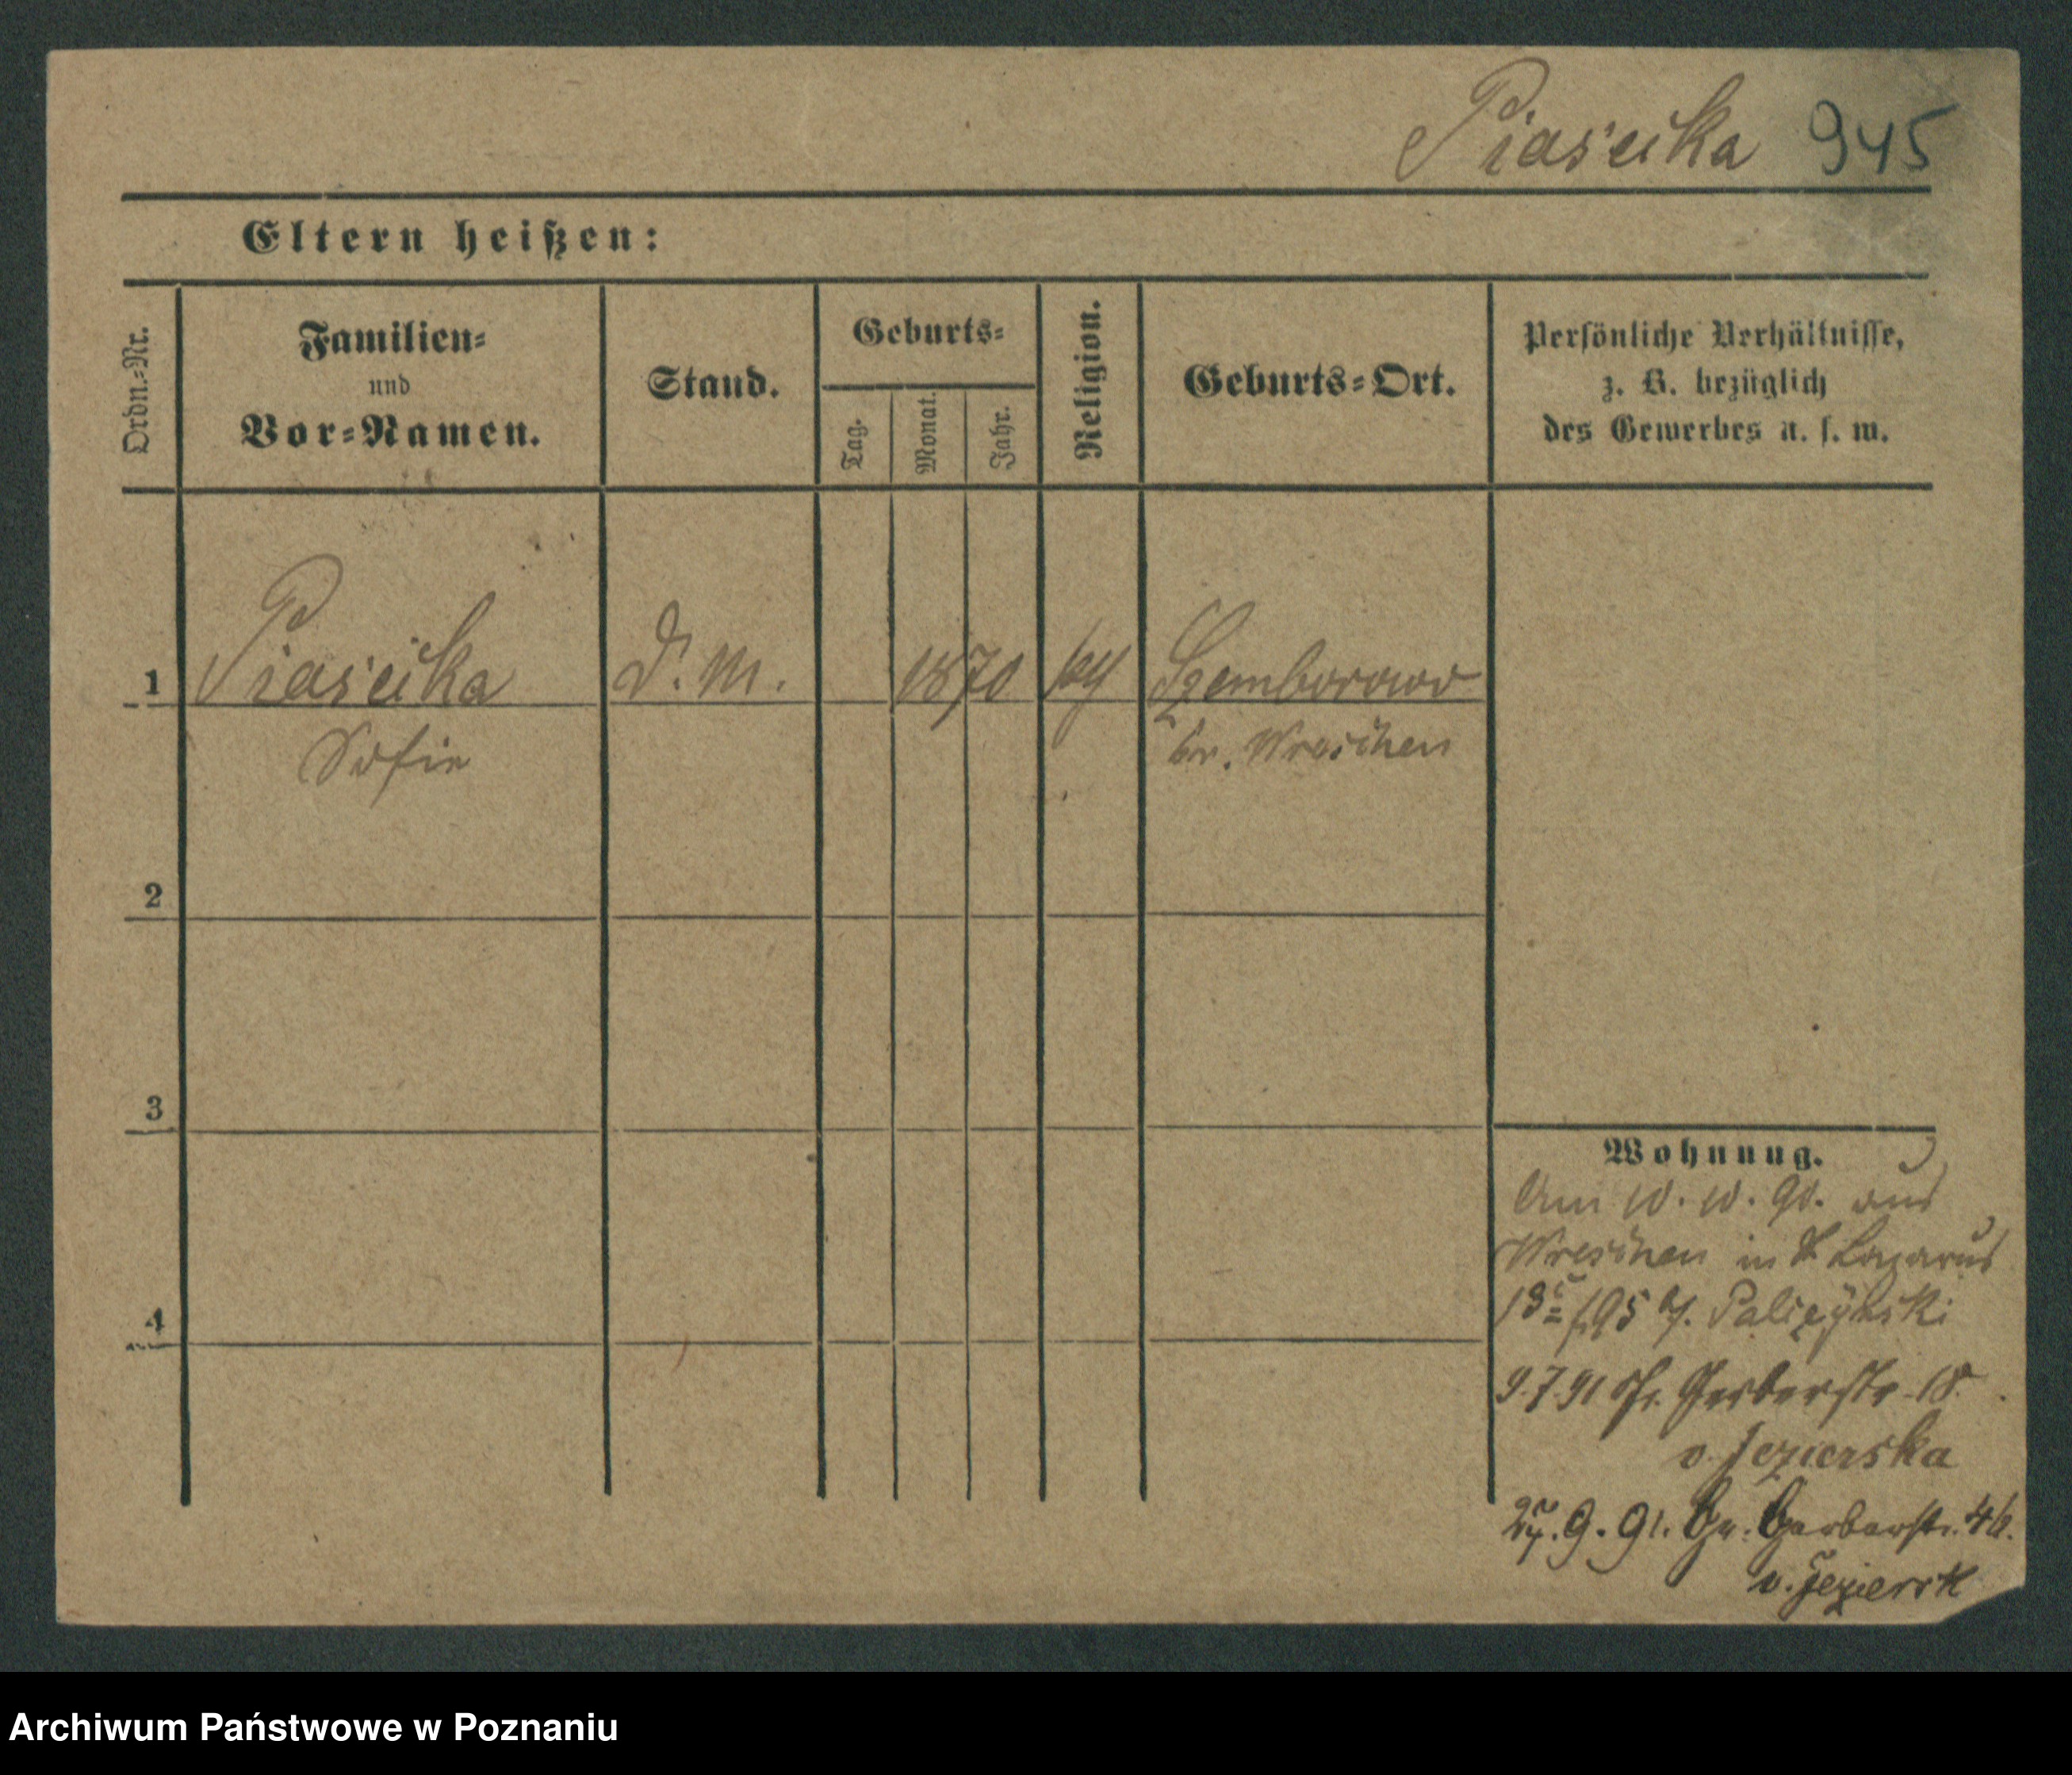 Piascika 945
Eltern heißen:
Ordn.-Nr.
Familien-
und
Vor-Namen.
Stand.
Geburts-
Tag.
Monat.
Jahr.
Religion.
Geburts-Ort.
Persönliche Verhältnisse,
z. B. bezüglich
des Gewerbes u. s. w.
1 Piascika D. M. 1870 Szemborowo
Sofie Kr. Wreschen
2
3
4
Wohnung.
Am 10. 10. 90. aus
Wreschen in St Lazarus
195
9.7.91 Gerberstr. 18
v. Jezierska
27. 9. 91. Gr. Gerberstr. 46.
v. Jeziersk
Archiwum Państwowe w Poznaniu